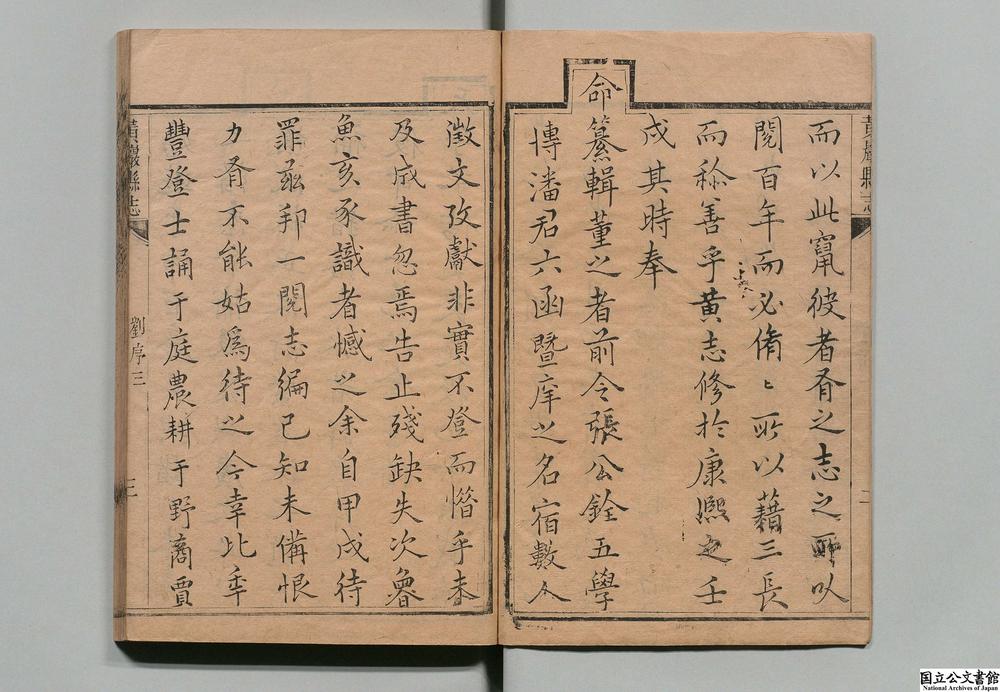 黃巖縣志
二
而以此竄彼者胥之志之所以
閱百年而必脩〻所以藉三長
而稱善乎黄志修於康熙之壬
戌其時奉
命纂輯董之者前令張公銓五學
博潘君六函暨庠之名宿數人
徵文攷獻非實不登而惜乎未
及成書忽焉告止殘缺失次魯
魚亥豕識者憾之余自甲戌待
罪茲邦一閱志編已知未備恨
力有不能姑爲待之今幸比年
豐登士誦于庭農耕于野商賈
黃巖縣志
劉序三
三
国立公文書館
National Archives of Japan